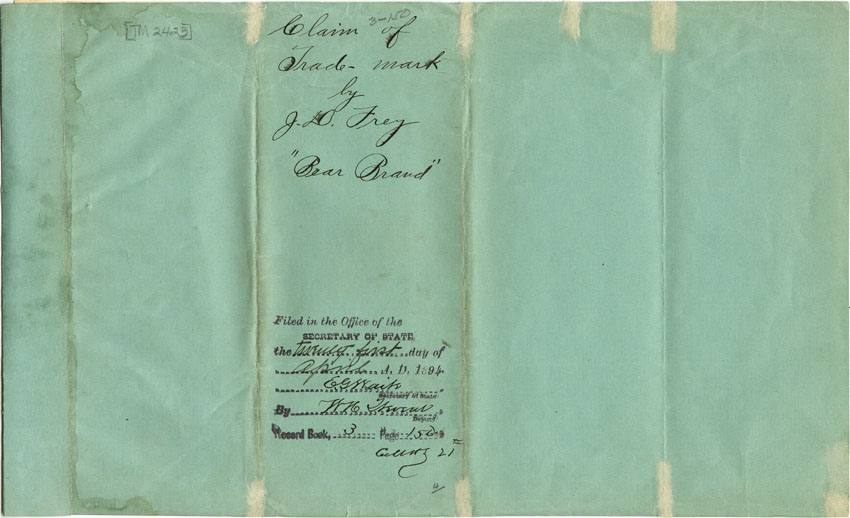 [TM 2423]
3-150
Claim of
Trade-mark
by
J. D. Frey
"Bear Brand"
Filed in the Office of the
SECRETARY OF STATE,
the twenty first day of
April A. D. 1894
E G Waite
Secretary of State
By W. H.
Deputy
Record Book, 3 Page 150
21